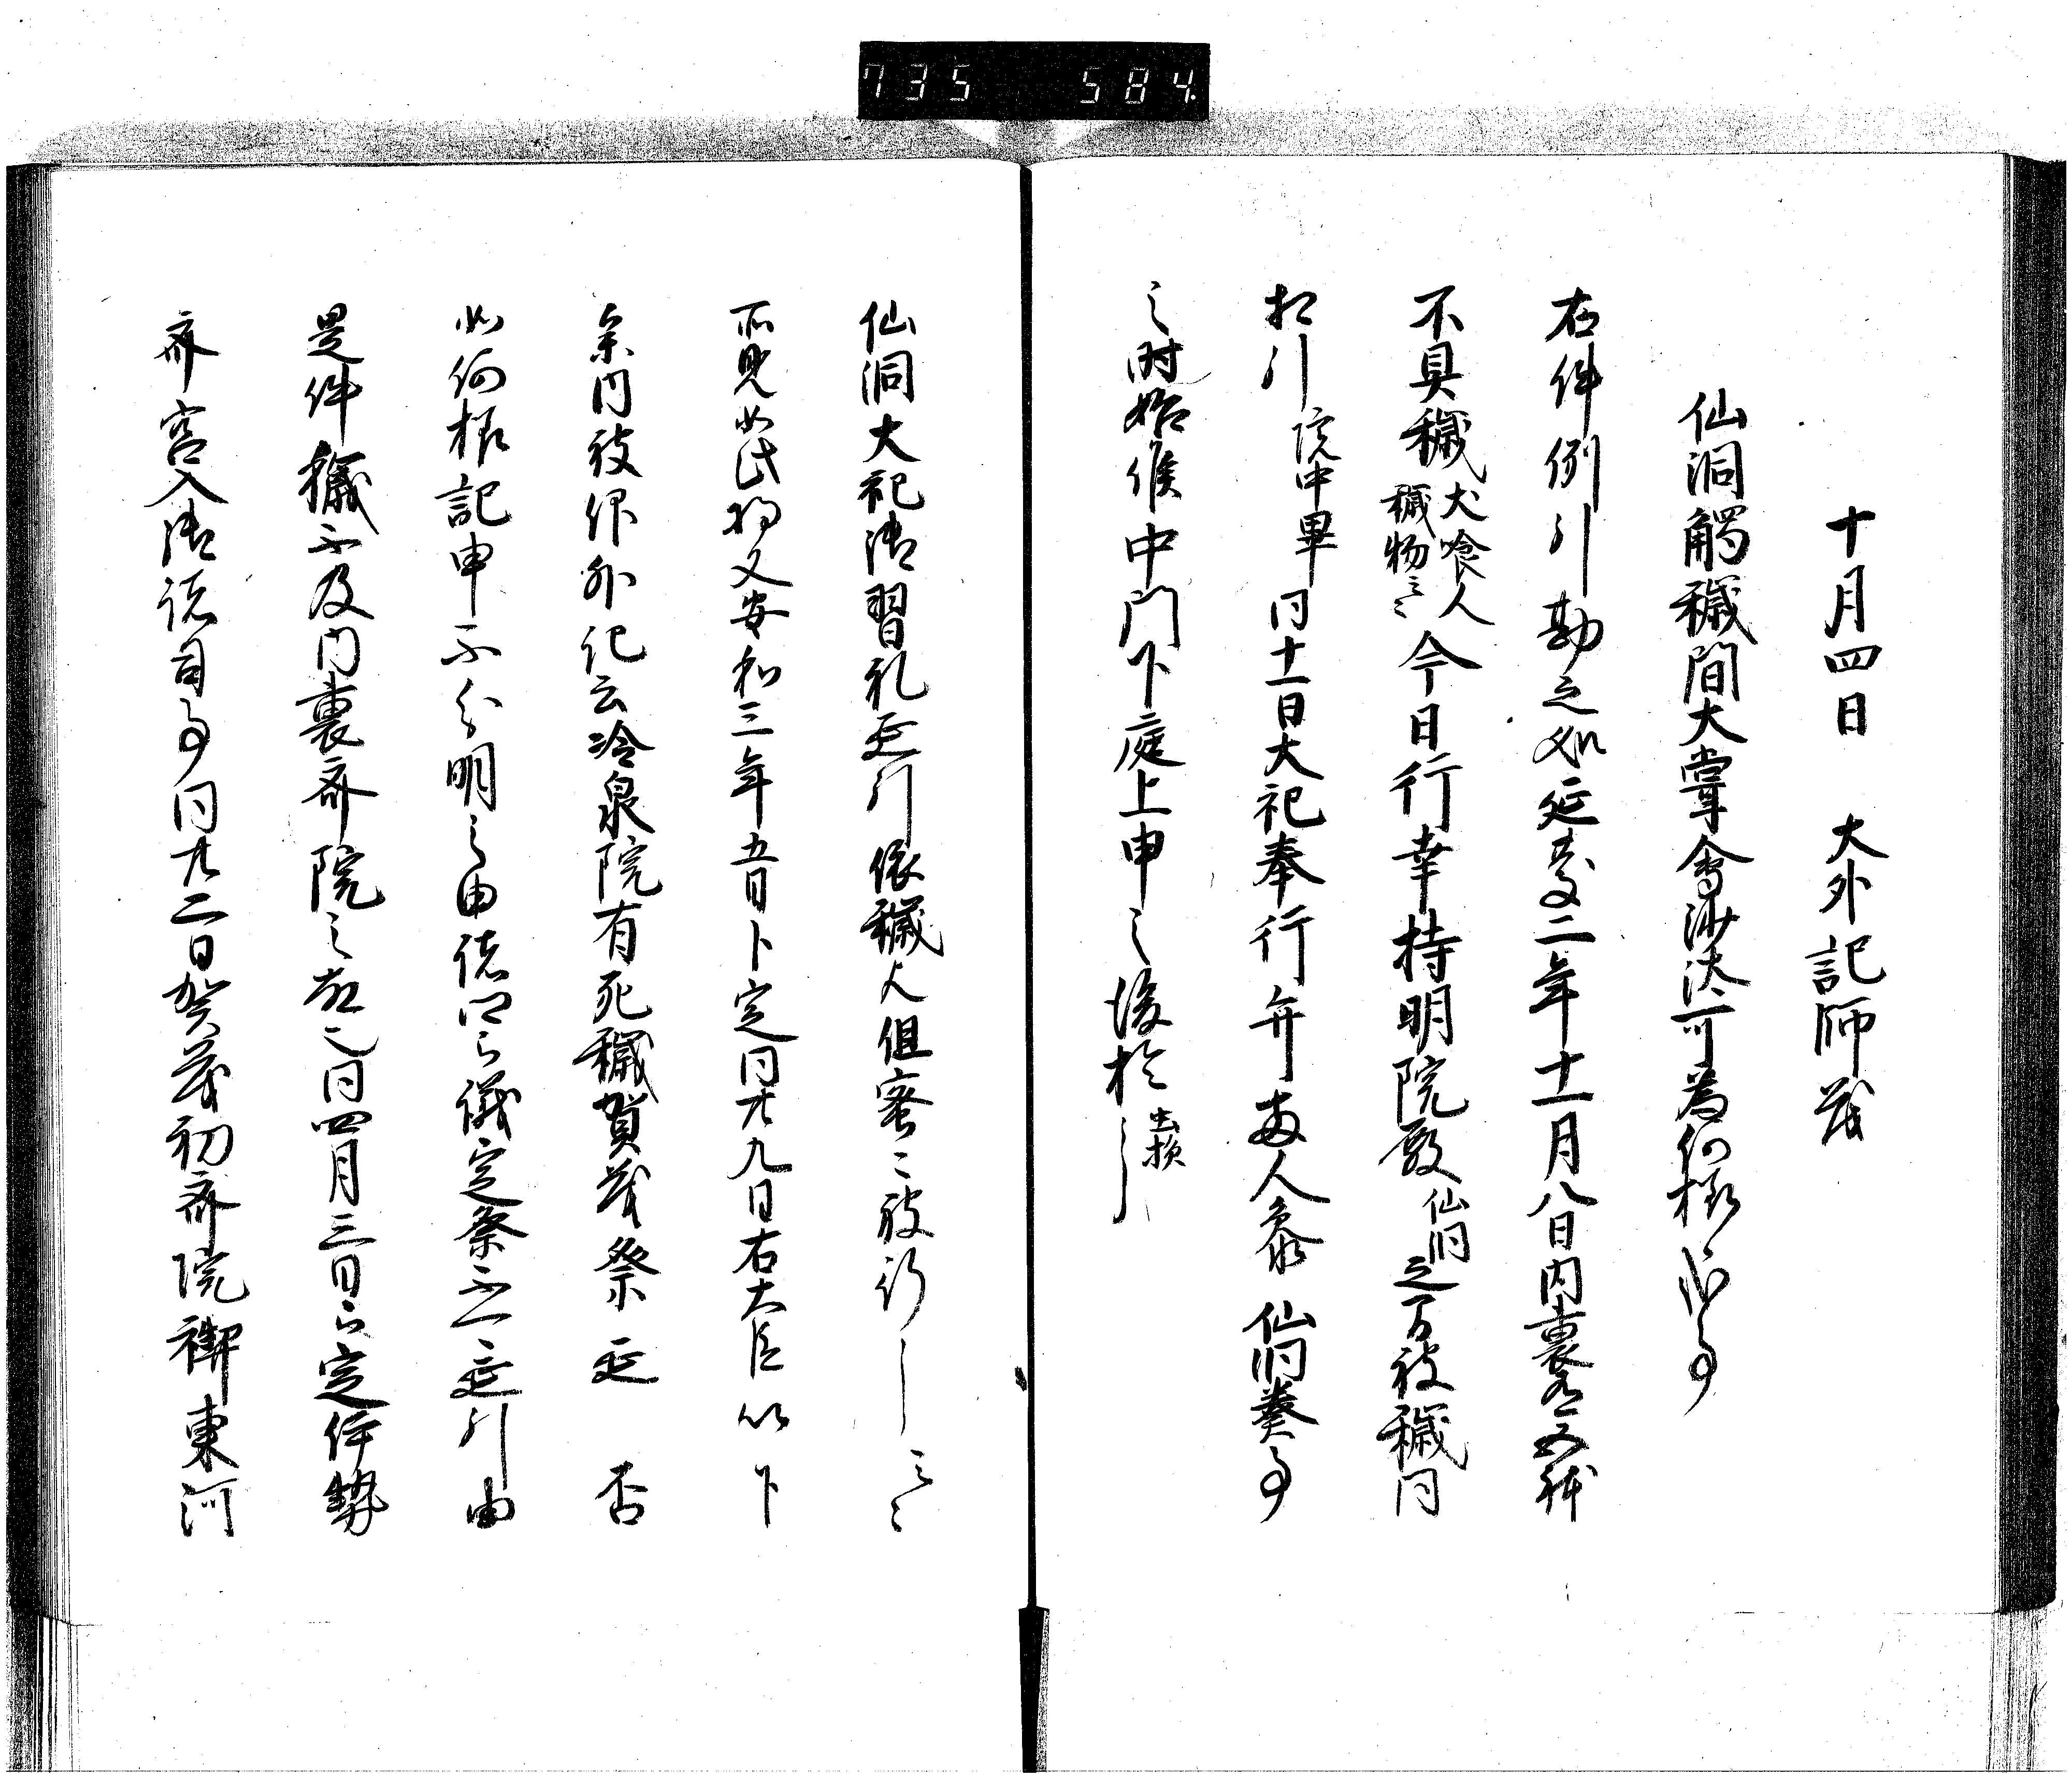 735 584
十月四日 大外記師茂
仙洞觸穢間大嘗會沙汰可為何様哉事
右件例引勘之処延慶二年十一月八日内裏有五躰
不具穢犬喰人穢物云々今日行幸持明院殿仙洞之間被穢同
於引院中畢同十一日大祀奉行弁兩人參仙洞奏事
之時始候中門下庭上申之後於
仙洞大祀御習礼延引依穢也但密々被行之云々
所見如此将又安和三年五月卜定同廿九日右大臣以下
参内被仰外記云冷泉院有死穢賀茂祭延否
如何様記申不分明之由諸卿令議定祭不可延引由
是件穢不及内裏斎院之故也同四月三日令定伊勢
斎宮入御諸司事同廿二日賀茂初斎院禊東河